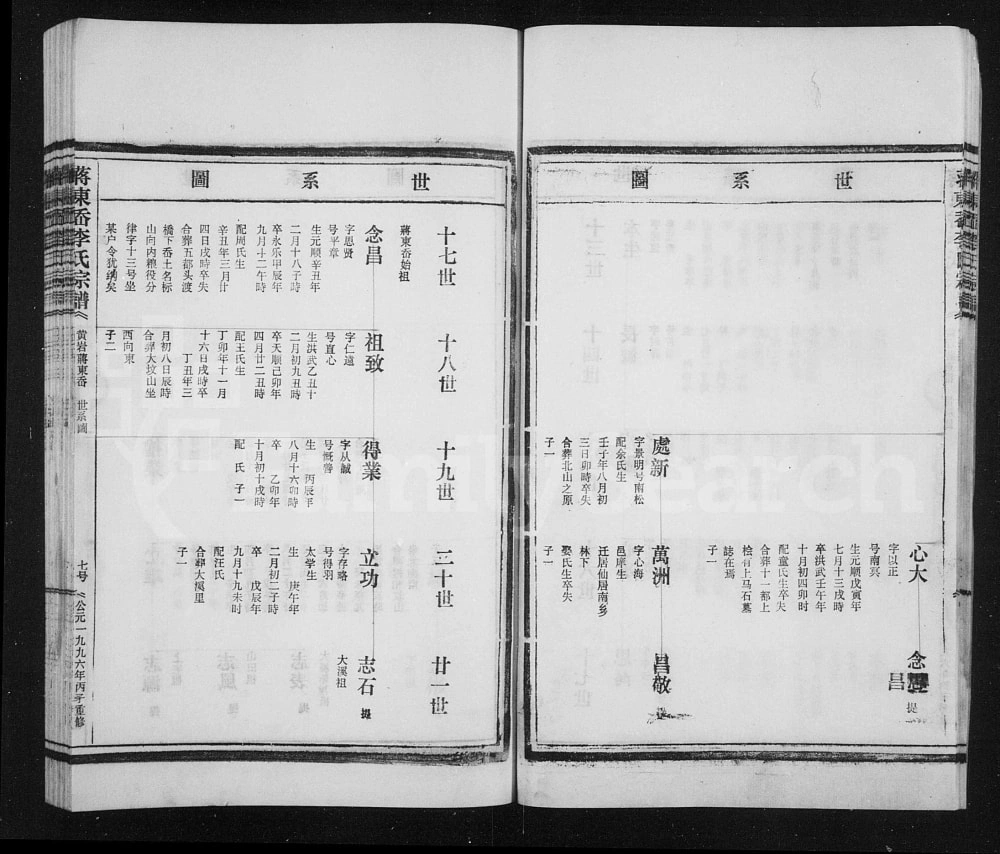 世系圖
心大
字以正
號南㝠
生元順戊寅年
七月十三戌時
卒洪武壬午年
十月初四卯时
配童氏生卒失
合葬十一都上
桧岩上马石墓
誌在焉
子一
念
昌
提
處新
字景明号南松
配余氏生
壬子年八月初
三日卯時卒失
合葬北山之原
子一
萬洲
字心海
邑庠生
迁居仙居南乡
林下
娶氏生卒失
子一
昌敬
世系圖
十七世
十八世
十九世
二十世
廿一世
蔣東岙始祖
念昌
字思贤
号平章
生元順辛丑年
二月十八子時
卒永乐甲辰年
九月十二午時
配周氏生
辛丑年三月廿
四日戌時卒失
合葬五都头渡
橋下岙土名标
山向内粮役分
律字十三号坐
某户今犹納矣
祖致
字仁遠
号直心
生洪武乙丑十
二月初九丑時
卒天顺己卯年
四月廿二丑時
配王氏生
丁卯年十一月
十六日戌時卒
丁丑年三
月初八日辰時
合葬大坟山坐
西向東
子二
得業
字从誠
号慨善
生 丙辰年
八月十六卯時
卒 乙卯年
十月初十戌時
配 氏 子一
立功
字存略
号得羽
太学生
生 庚午年
二月初二子時
卒 戊辰年
九月十九未时
配汪氏
合葬大溪里
子一
志石
大溪祖
提
蔣東岙李氏宗譜
黄岩蔣東岙 世系圖
七号
公元一九九六年丙子重修